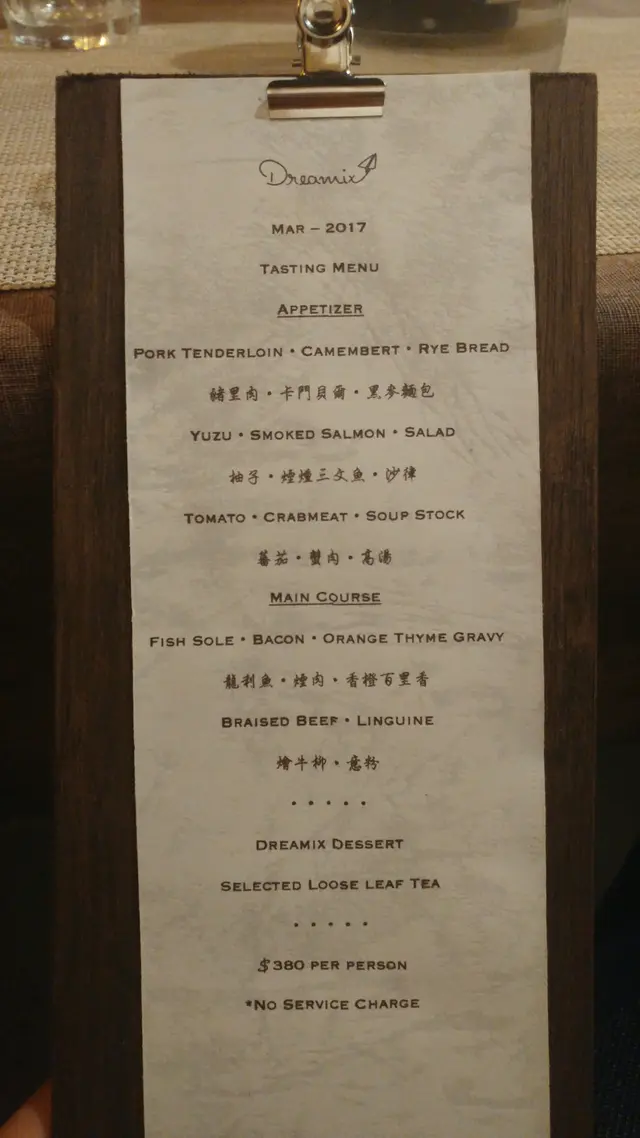 Dreamix
MAR – 2017
TASTING MENU
APPETIZER
PORK TENDERLOIN • CAMEMBERT • RYE BREAD
豬里肉・卡門貝爾・黑麥麵包
YUZU • SMOKED SALMON • SALAD
柚子・煙燻三文魚・沙律
TOMATO • CRABMEAT • SOUP STOCK
蕃茄・蟹肉・高湯
MAIN COURSE
FISH SOLE • BACON • ORANGE THYME GRAVY
龍利魚・煙肉・香橙百里香
BRAISED BEEF • LINGUINE
燴牛柳・意粉
• • • • •
DREAMIX DESSERT
SELECTED LOOSE LEAF TEA
• • • • •
$380 PER PERSON
*NO SERVICE CHARGE